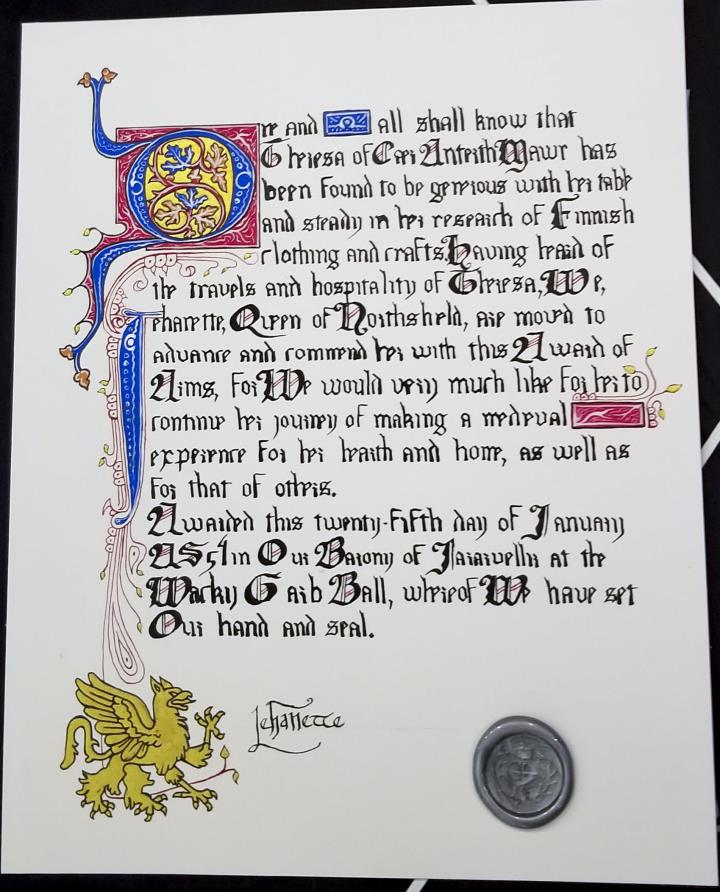 One and all shall know that
Theresa of Caer Anterth Mawr has
been found to be generous with her table
and steady in her research of Finnish
clothing and crafts, Having heard of
the travels and hospitality of Theresa, We,
Jehanette, Queen of Northshield, are moved to
advance and commend her with this Award of
Arms, for We would very much like for her to
continue her journey of making a medieval
experience for her hearth and home, as well as
for that of others.
Awarded this twenty-fifth day of January
AS 51 in Our Barony of Jararvellir at the
Wacky Garb Ball, whereof We have set
Our hand and seal.
Jehanette